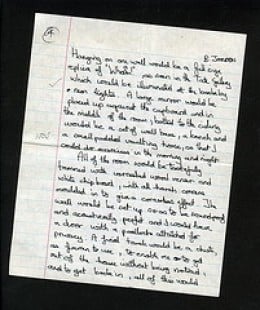 ④
B Jameson
Hanging on one wall would be a full size
replica of "Whistl" as seen in the Tate Gallery
which would be illuminated at the base by
neon lights. A large mirror would be
placed up against the cupboard and in
the middle of the room, bolted to the ceiling
would be a set of wall bars, a bench and
a small padded vaulting horse, so that I
could do exercises in the morning and night.
All of the room would be tastefully
trimmed with varnished wood veneer and
white chip board, with all the corners
moulded in to give a cornerless effect. The
wall would be set up so as to be soundproof
and acoustically perfect and I would have
a door with a padlock attached for
privacy. A fairly would be a chute,
as to enable me to get
out of the house without being noticed,
and to get back in, all of this would